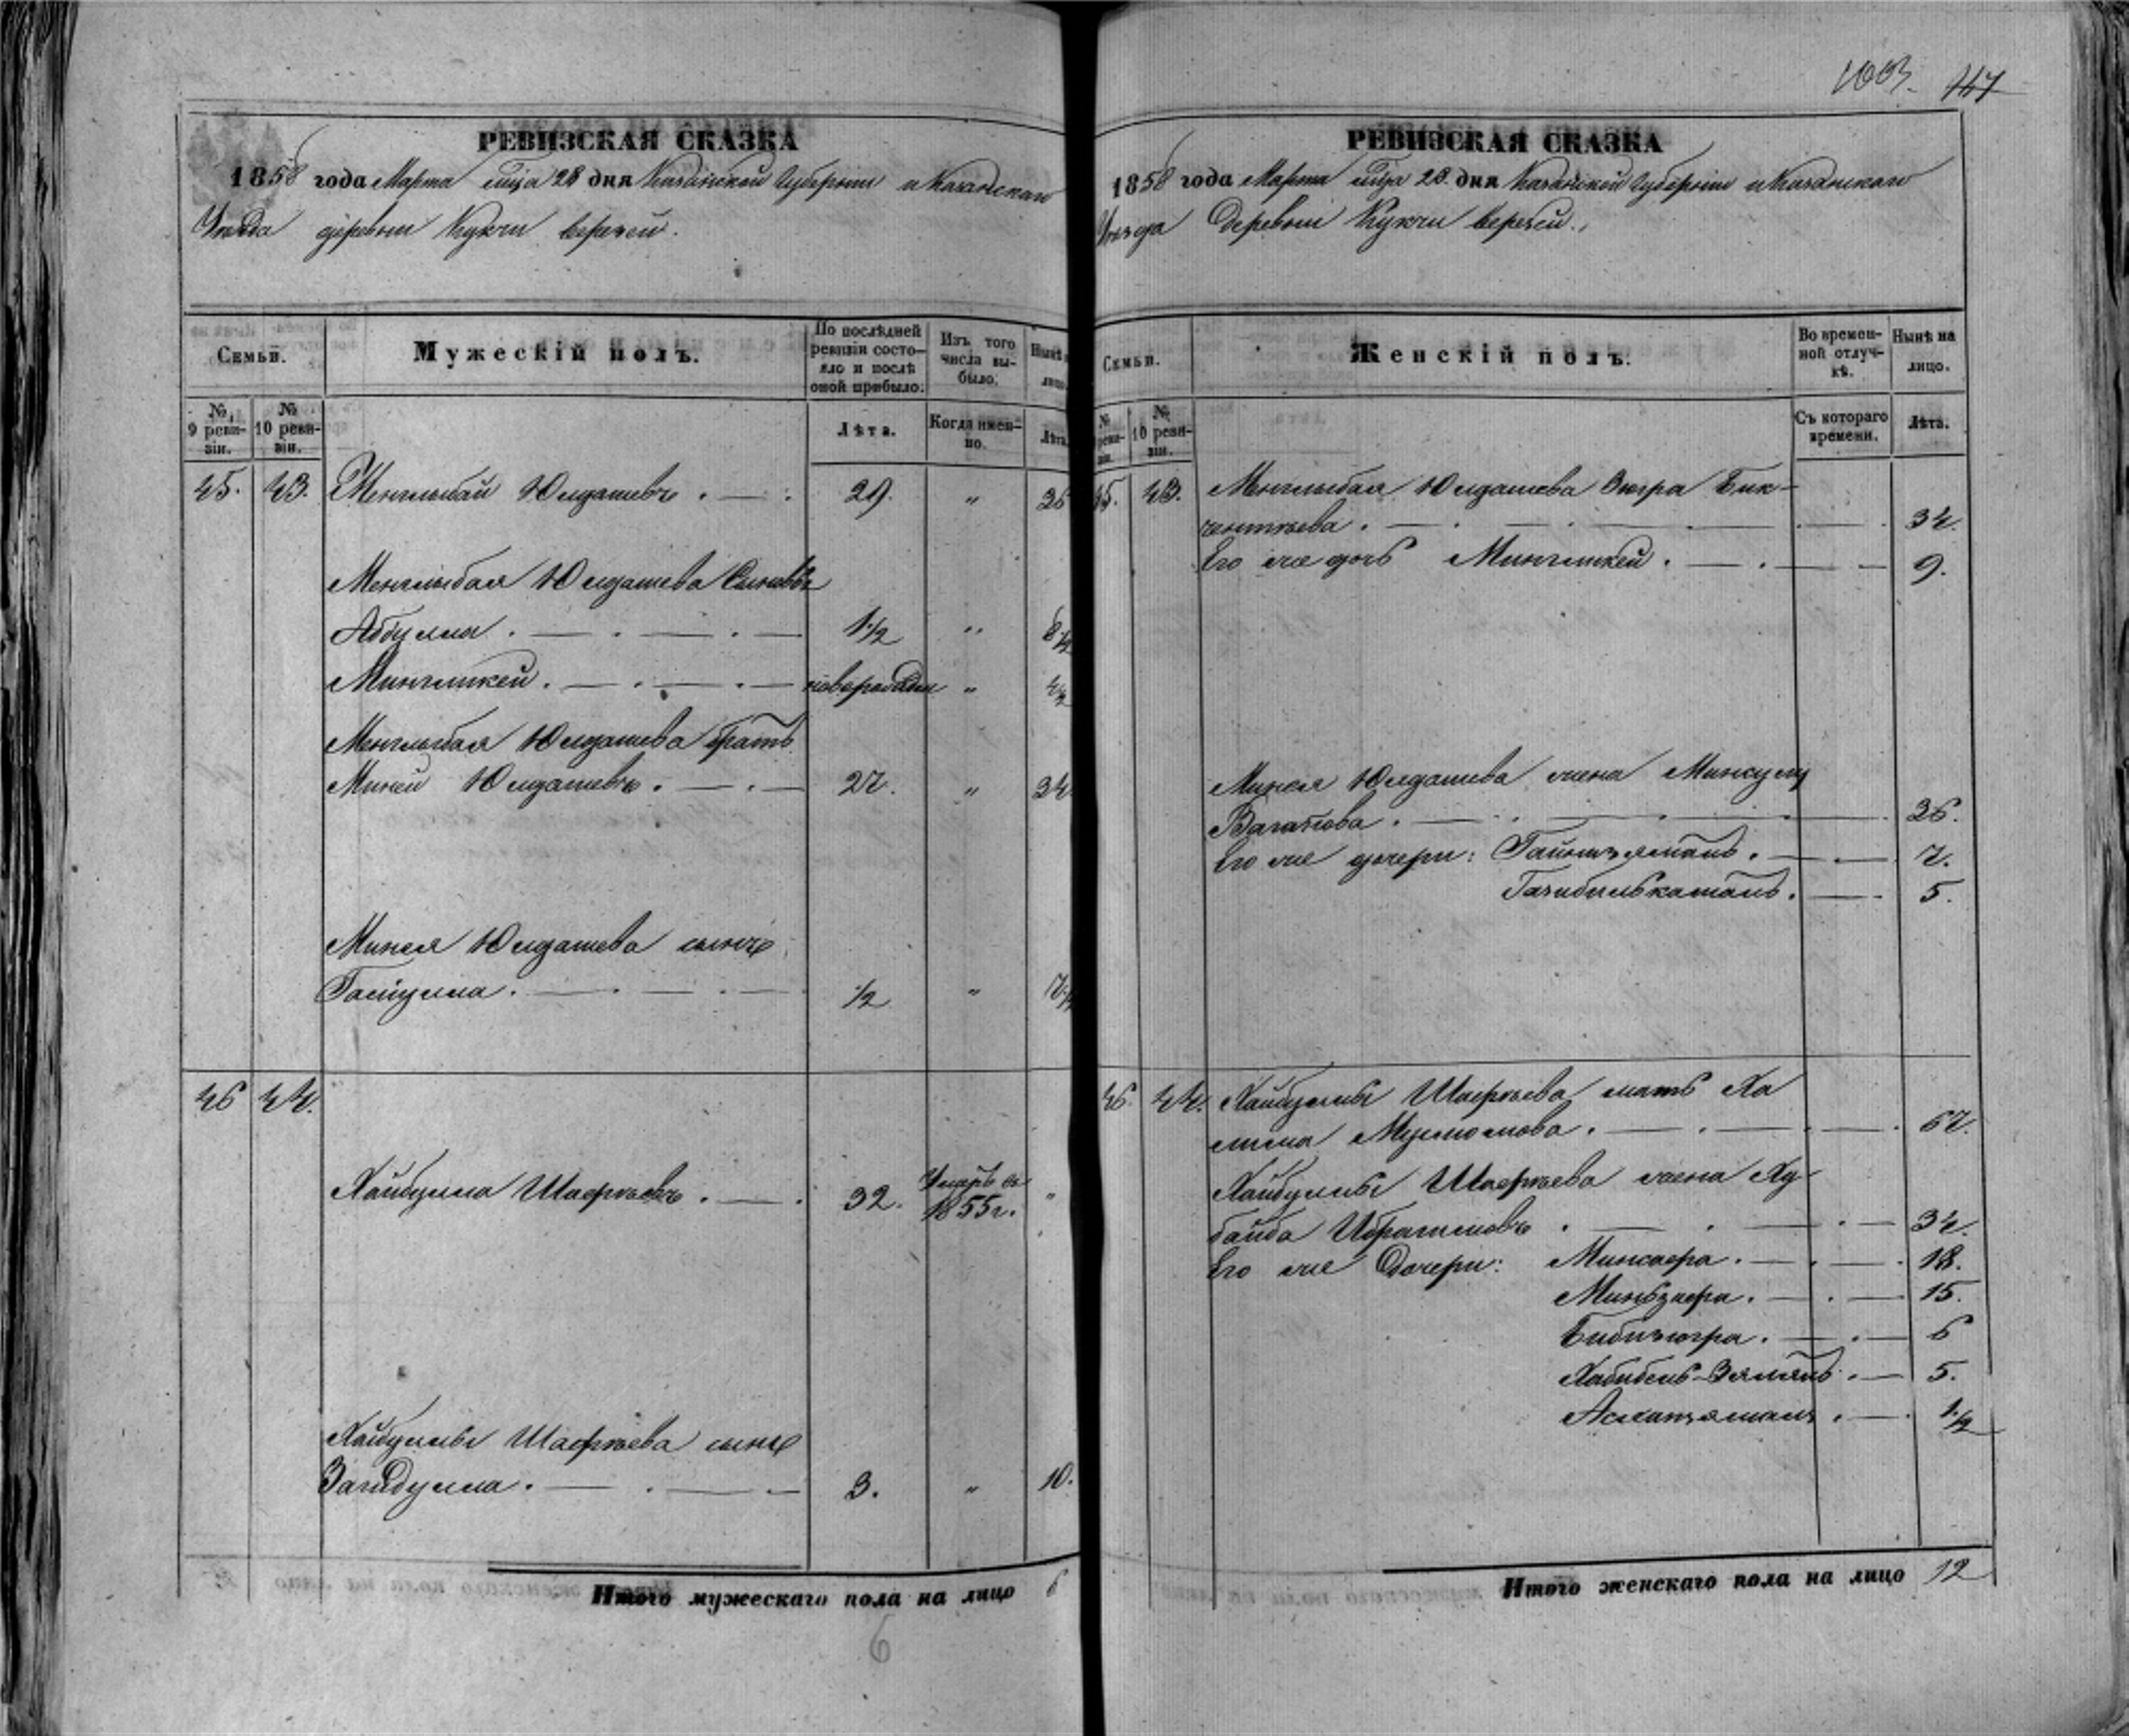 1003. 117
РЕВИЗСКАЯ СКАЗКА
1858 года Марта м̃ца 28 дня Казанской Губернии и Казанскаго
Уезда деревни Кукчи верхней.
Семьи.
Мужескій полъ.
По послѣдней ревизіи состояло и послѣ оной прибыло.
Изъ того числа выбыло.
Нынѣ лицо
№ 9 ревизіи.
№ 10 ревизіи.
Лѣта.
Когда именно.
Лѣта.
45. 43. Менглыбай Юлдашевъ. 29. „ 36
Менглыбая Юлдашева Сыновья
Абдулла. 1½ „ 8½
Мингликей. новорожден „
Менглыбая Юлдашева братъ
Миней Юлдашевъ. 27. „ 34
Минея Юлдашева сынъ
½ „ 7½
46 44.
Хайбулла Шафѣевъ. 32. Умеръ въ 1855г. „
Хайбуллы Шафѣева сынъ
Загидулла. 3. „ 10.
Итого мужескаго пола на лицо 6
6
РЕВИЗСКАЯ СКАЗКА
1858 года Марта м̃ца 28. дня Казанской Губернии и Казанскаго
Уезда Деревни Кукчи верхней.
Семьи.
Женскій полъ.
Во временной отлучкѣ.
Нынѣ на лицо.
№ реви- зіи.
№ 10 ревизіи.
Съ котораго времени.
Лѣта.
45. 43. Менглыбая Юлдашева Зюгра Бик-
34.
Его же дочь Мингликей. 9.
Минея Юлдашева жена
Вагапова. 36.
Его же дочери: Гайнизямалъ. 7.
5.
46. 44. Хайбуллы Шафѣева мать Ха
лима 67.
Хайбуллы Шафѣева жена Ху
байба Ибрагимовъ 34.
Его же Дочери: Минсафа. 18.
15.
Бибизюгра. 6
Хабибель-Зямалъ. 5.
1½
Итого женскаго пола на лицо 12